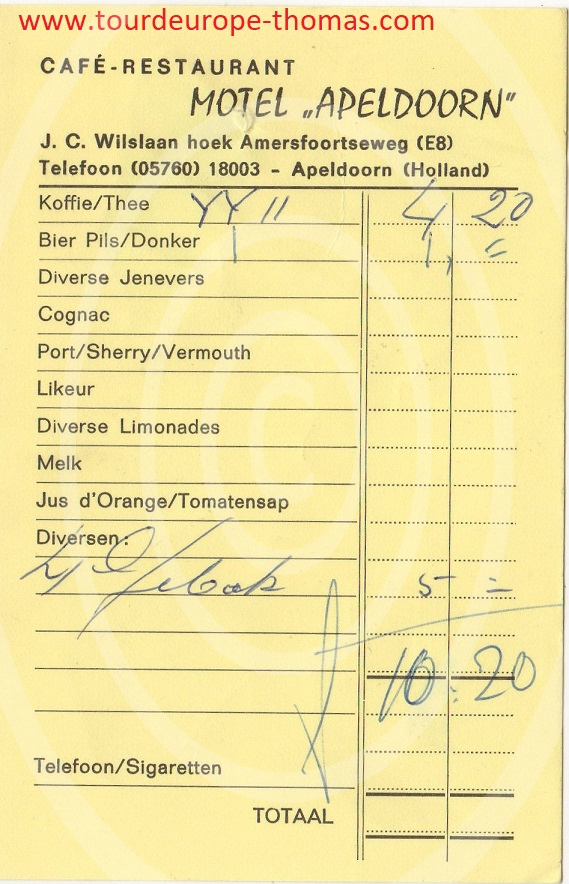 www.tourdeurope-thomas.com
CAFÉ-RESTAURANT
MOTEL „APELDOORN"
J. C. Wilslaan hoek Amersfoortseweg (E8)
Telefoon (05760) 18003 - Apeldoorn (Holland)
Koffie/Thee 4 20
Bier Pils/Donker 1, =
Diverse Jenevers
Cognac
Port/Sherry/Vermouth
Likeur
Diverse Limonades
Melk
Jus d'Orange/Tomatensap
Diversen:
4 Gebak 5 =
10:20
Telefoon/Sigaretten
TOTAAL